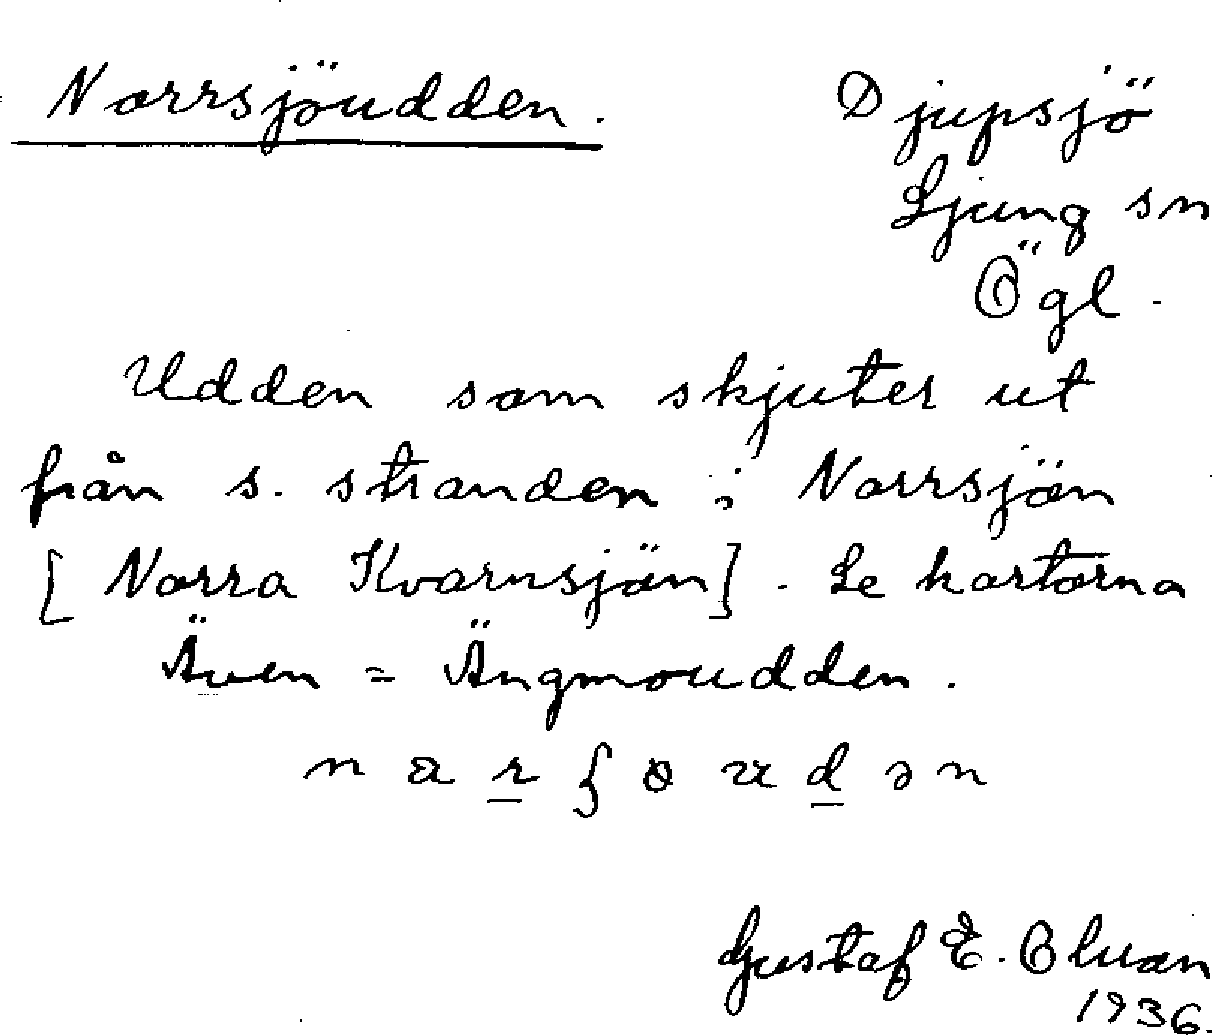 Norrsjöudden.
Djupsjö
Ljung sn
Ögl.
Udden som skjuter ut
från s. stranden i Norrsjön
[Norra Kvarnsjön]. Se kartorna
Även = Ängmoudden.
Gustaf E.
1936.